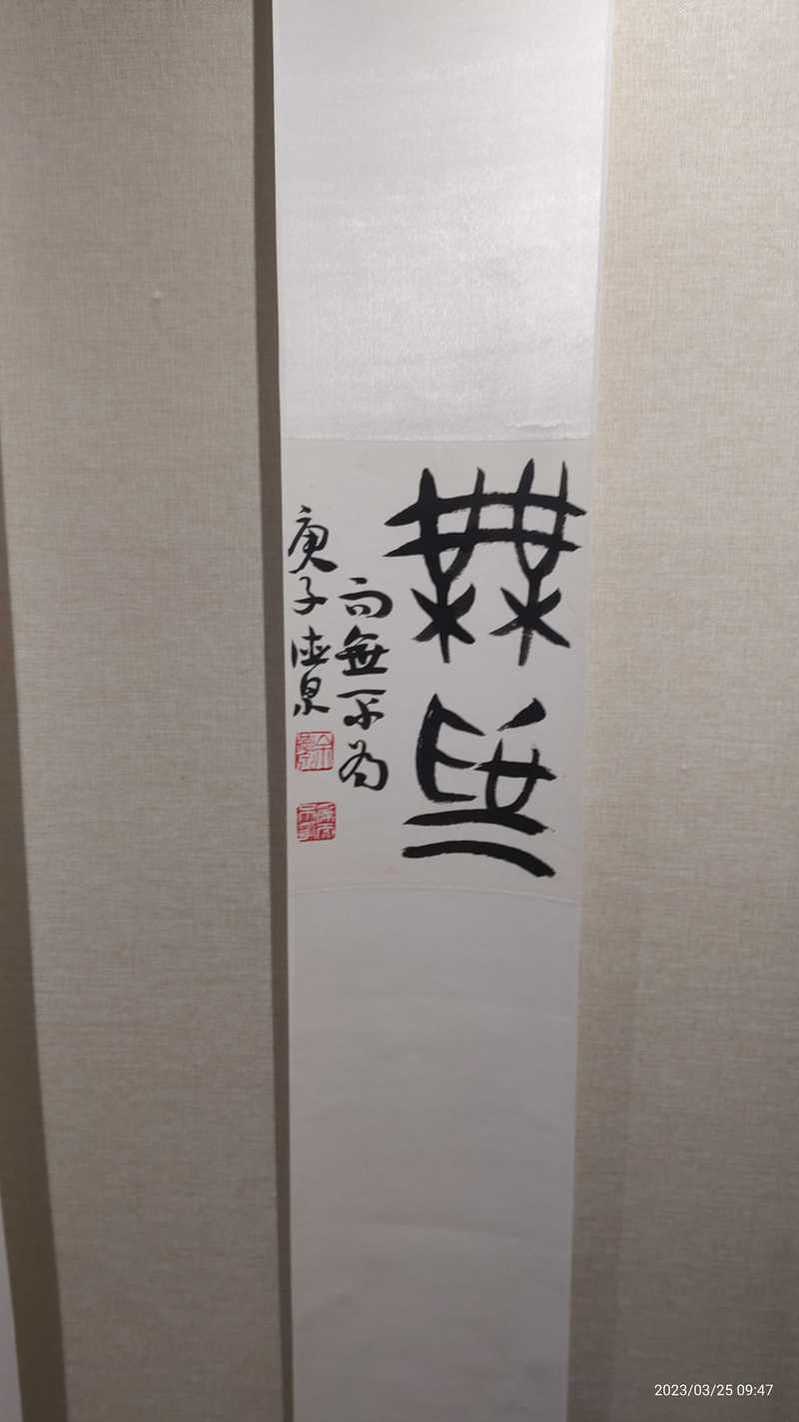 無爲
而無不為
庚子德泉
余德泉
2023/03/25 09:47